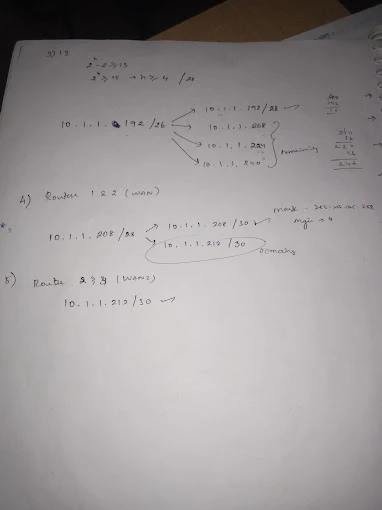 3) 13
2^n - 2 ≥ 13
2^n ≥ 15 → n ≥ 4 /28
10.1.1.192/28 ✓
10.1.1.192 /26
10.1.1.208
10.1.1.224
10.1.1.240
remaining
240
4) Router 1 & 2 (WAN)
10.1.1.208 /28
10.1.1.208 /30 ✓
mask - 255.255.255.252
10.1.1.212 /30
5) Router 2 & 3 (WAN2)
10.1.1.212/30 ✓